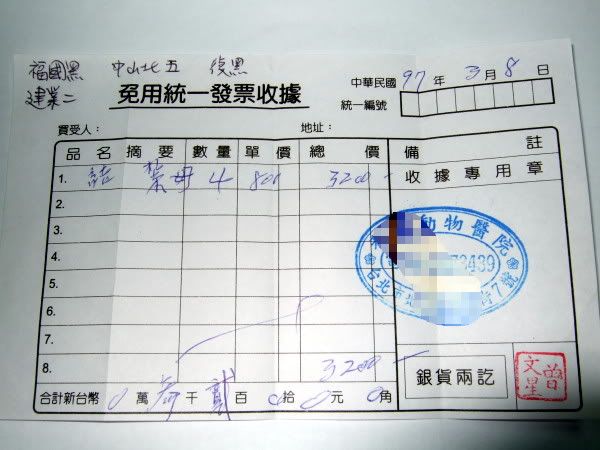 福國黑 中山北五 復黑
建業二
免用統一發票收據
中華民國 97 年 3 月 8 日
統一編號
買受人： 地址：
品名 摘要 數量 單價 總價 備註
收據專用章
1. 結 紮母 4 800 3200
2.
3.
4.
5.
6.
7.
8. 3200
動物醫院
439
台北市 7號
合計新台幣 0 萬 參 千 貳 百 0 拾 0 元 0 角
銀貨兩訖
曾文星